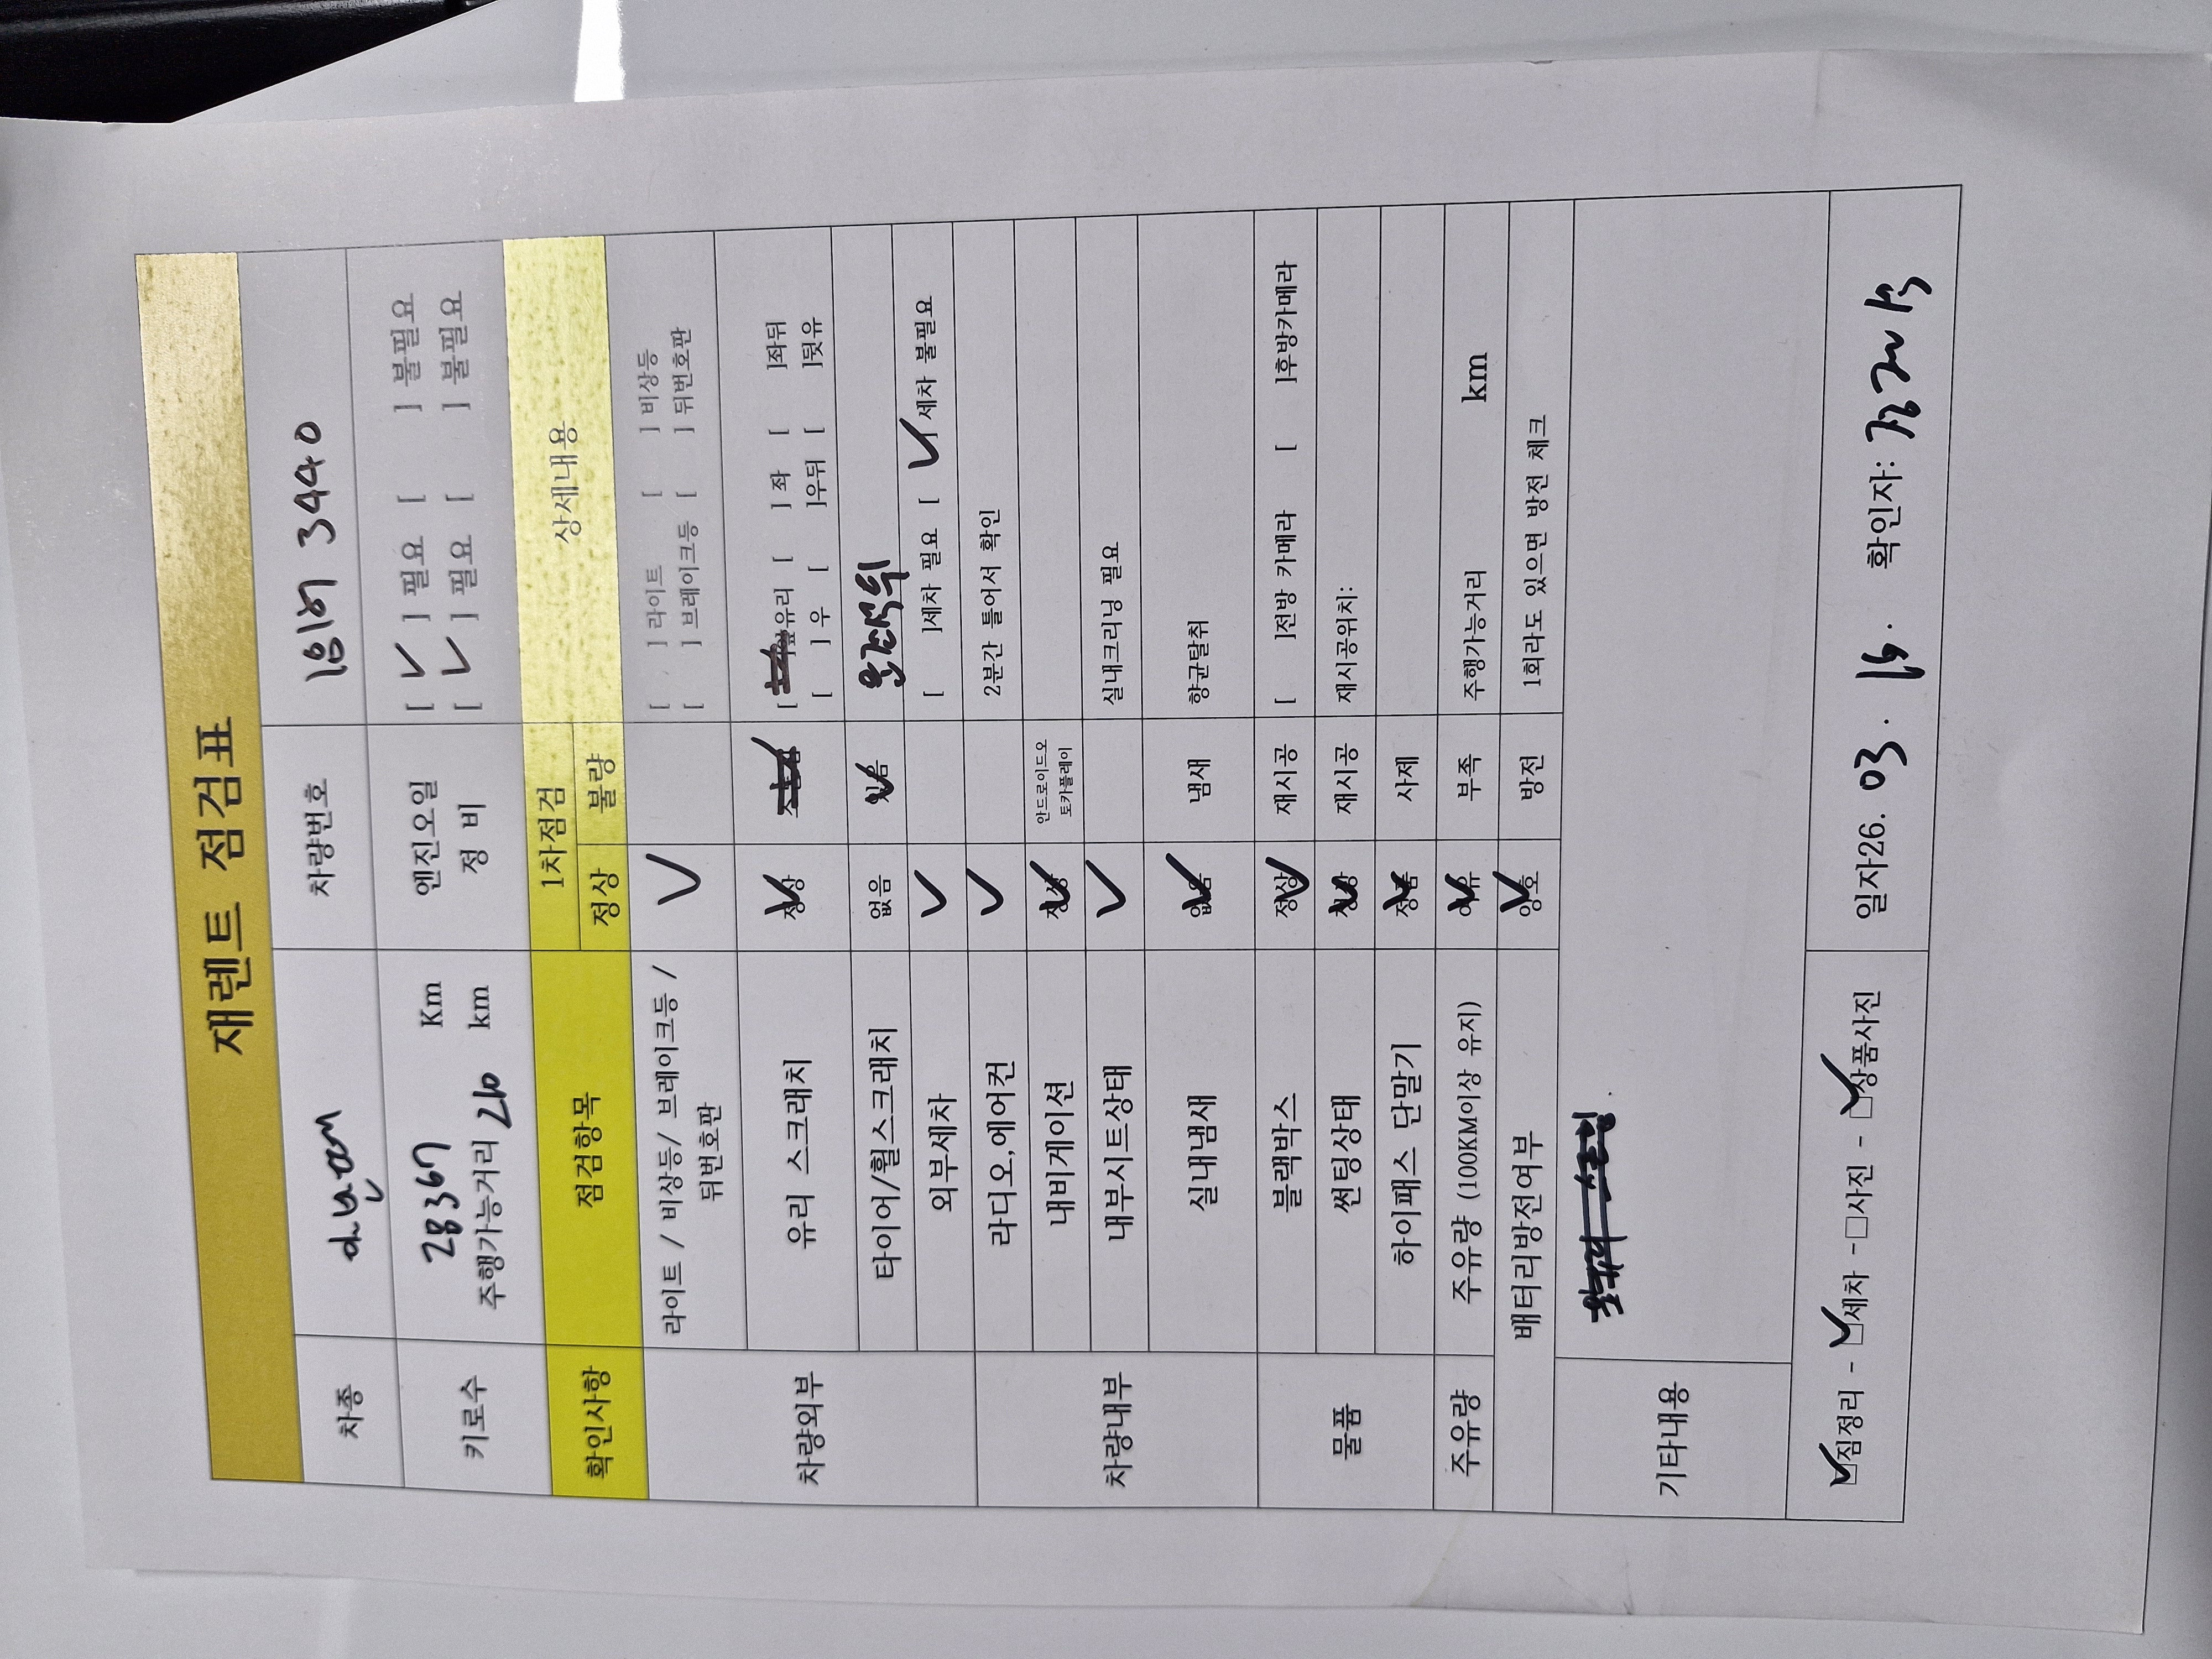 재렌트 점검표
차종
차량번호
3440
키로수
28367 Km
주행가능거리 210 km
엔진오일
정 비
[ ✓ ] 필요 [ ] 불필요
[ ✓ ] 필요 [ ] 불필요
확인사항
점검항목
1차점검
정상
불량
상세내용
차량외부
라이트 / 비상등/ 브레이크등 /
뒤번호판
✓
[ ] 라이트 [ ] 비상등
[ ] 브레이크등 [ ] 뒤번호판
유리 스크래치
정상
[ ]앞유리 [ ] 좌 [ ]좌뒤
[ ] 우 [ ]우뒤 [ ]뒷유
타이어/휠스크래치
없음
있음
외부세차
✓
[ ]세차 필요 [ ✓ ]세차 불필요
차량내부
라디오,에어컨
✓
2분간 틀어서 확인
내비게이션
정상
안드로이드오
토카플레이
내부시트상태
✓
실내크리닝 필요
실내냄새
없음
냄새
향균탈취
물품
블랙박스
정상
재시공
[ ]전방 카메라 [ ]후방카메라
썬팅상태
정상
재시공
재시공위치:
하이패스 단말기
정품
사제
주유량
주유량 (100KM이상 유지)
여유
부족
주행가능거리 km
배터리방전여부
양호
방전
1회라도 있으면 방전 체크
기타내용
☑짐정리 - ☑세차 -□사진 - ☑상품사진
일자26. 03. 15. 확인자: